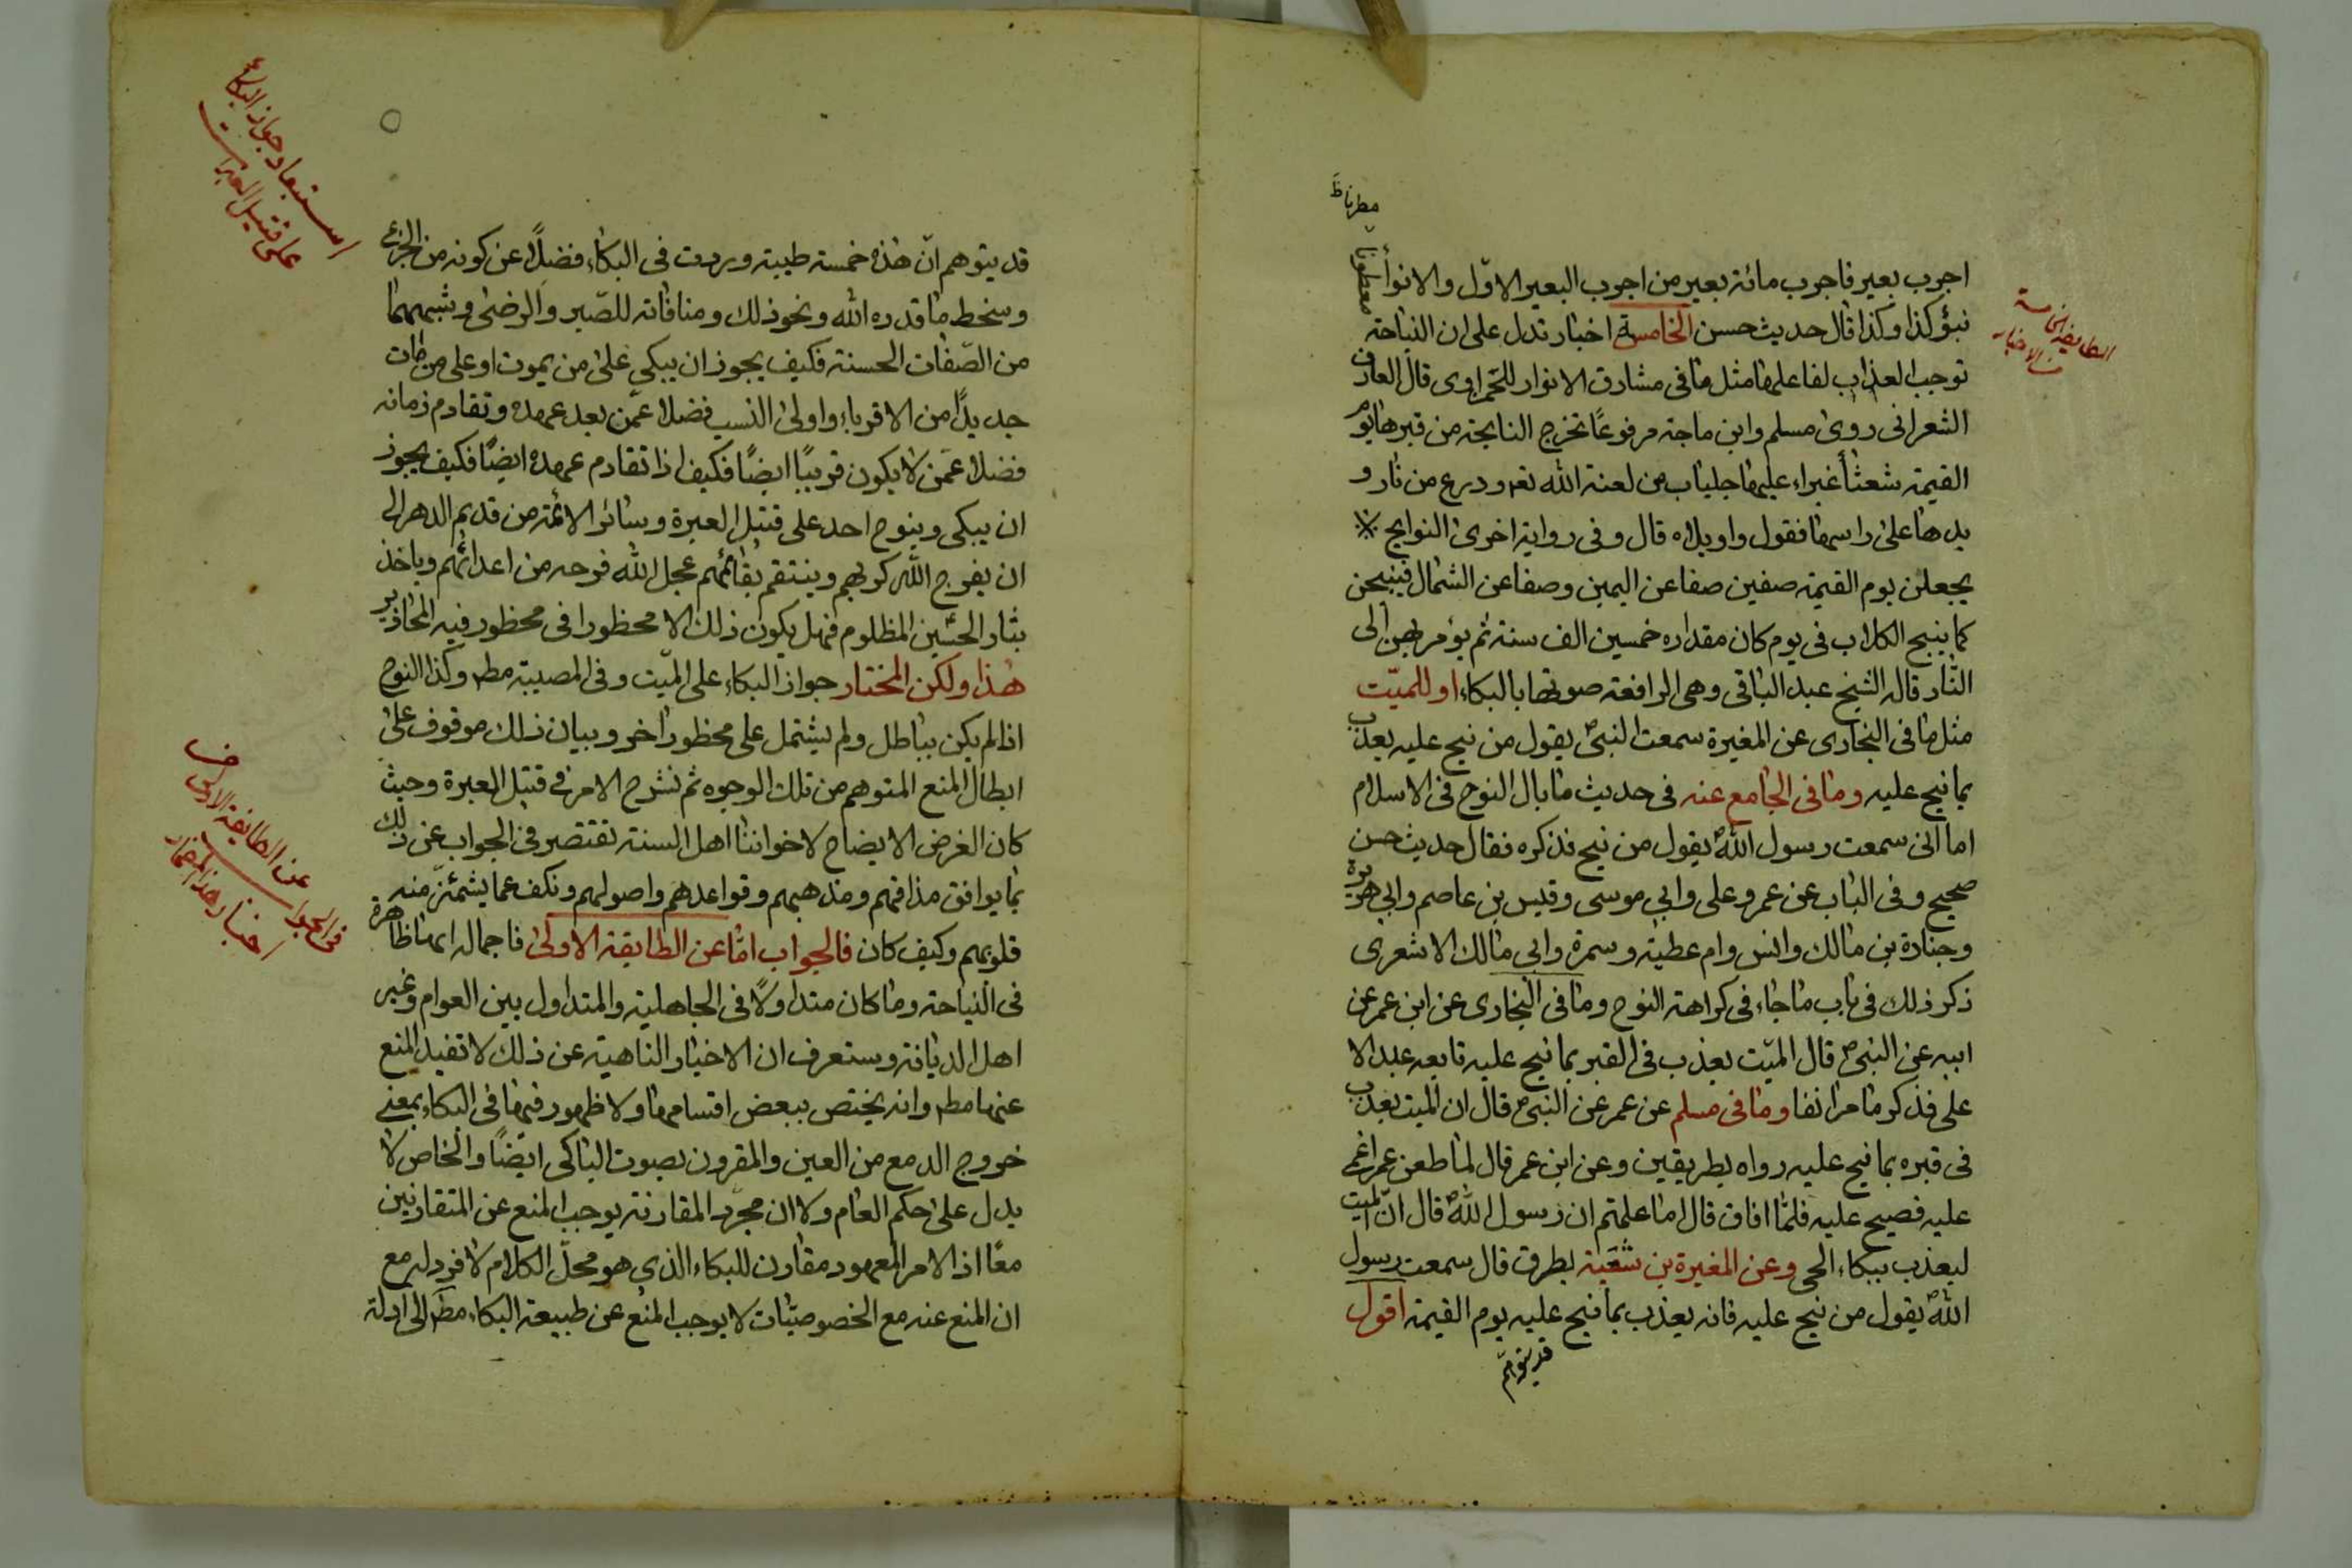 اجرب بعير فاجرب مائة بعير من اجرب البعير الاوّل والانوأ
نبؤ كذا وكذا قال حديث حسن الخامسة اخبار تدل على ان النياحة
توجب العذاب لفاعلها مثل ما فى مشارق الانوار للحمزاوى قال العارف
الشعرانى روى مسلم وابن ماجة مرفوعًا تخرج النايحة من قبرها يوم
القيمة شعثأ غبراء عليها جلباب من لعنة الله تعه ودرع من نار و
يدها على راسها فقول واويلاه قال وفى رواية اخرى النوايح
يجعلن يوم القيمة صفين صفا عن اليمين وصفا عن الشمال فينبحن
كما ينبح الكلاب فى يوم كان مقداره خمسين الف سنة ثم يؤمر بهن الى
النّار قال الشيخ عبد الباقى وهى الرافعة صوتها بالبكاء او للميّت
مثل ما فى البخارى عن المغيرة سمعت النبىّ يقول من نيح عليه يعذب
بما نيح عليه وما فى الجامع عنه فى حديث ما بال النوح فى الاسلام
اما انى سمعت رسول اللهؐ يقول من نيح فذكره فقال حديث حسن
صحيح وفى الباب عن عمر وعلى وابى موسى وقيس بن عاصم وابى هريرة
وجنادة بن مالك وانس وام عطية وسمرة وابى مالك الاشعرى
ذكر ذلك فى باب ما جاء فى كراهة النوح وما فى البخارى عن ابن عمر عن
ابيه عن النبىؐ قال الميّت يعذب فى القبر بما نيح عليه تابعه عبد الا
على فذكر ما مر انفا وما فى مسلم عن عمر عن النبىؐ قال ان الميت يعذب
فى قبره بما نيح عليه رواه بطريقين وعن ابن عمر قال لما طعن عمر اغمى
عليه فصيح عليه فلمّا افاق قال اما علمتم ان رسول اللهؐ قال انّ الميت
ليعذب ببكاء الحى وعن المغيرة بن شعبة بطرق قال سمعت رسول
اللهؐ يقول من نيح عليه فانه يعذب بما نيح عليه يوم القيمة اقول
قد يتوهّم
مطرنا ظ
الطايفة الخامسة
من الاخبار
قد يتوهم انّ هذه خمسة طيبة وردت فى البكاء فضلًا عن كونه من الجزع
وسخط ما قدره الله ونحو ذلك ومنافاته للصّبر والرضى وشبههما
من الصّفات الحسنة فكيف يجوز ان يبكى على من يموت او على من مات
جديدًا من الاقرباء واولى النسب فضلا عمّن بعد عهده وتقادم زمانه
فضلا عمّن لا يكون قريبًا ايضًا فكيف اذا تقادم عهده ايضًا فكيف يجوز
ان يبكى وينوح احد على قتيل العبرة وسائر الائمة من قديم الدهر الى
ان يفرج الله كربهم وينتقم بقائمهم عجل الله فرجه من اعدائهم وياخذ
بثار الحسين المظلوم فهل يكون ذلك الا محظورا فى محظور فيه المحاذير
هذا ولكن المختار جواز البكاء على الميّت وفى المصيبة مطه وكذا النوح
اذا لم يكن بباطل ولم يشتمل على محظور اخر وبيان ذلك موقوف على
ابطال المنع المتوهم من تلك الوجوه ثم نشرح الامر فى قتيل العبرة وحيث
كان الغرض الايضاح لاخواننا اهل السنة نقتصر فى الجواب عن ذلك
بما يوافق مذاقهم ومذهبهم وقواعدهم واصولهم ونكف عما يشمئزّ منه
قلوبهم وكيف كان فالجواب امّا عن الطايفة الاولى فاجماله انها ظاهرة
فى النياحة وما كان متداولًا فى الجاهلية والمتداول بين العوام وغير
اهل الديانة وستعرف ان الاخبار الناهية عن ذلك لا تفيد المنع
عنها مطه وانه يختص ببعض اقسامها ولا ظهور فيها فى البكاء بمعنى
خروج الدمع من العين والمقرون بصوت الباكى ايضًا والخاص لا
يدل على حكم العام ولا ان مجرّد المقارنة يوجب المنع عن المتقارنين
معًا اذ الامر المعهود مقارن للبكاء الذى هو محلّ الكلام لا فرد له مع
ان المنع عنه مع الخصوصيّات لا يوجب المنع عن طبيعة البكاء مطه الى ادلة
استبعاد جواز البكاء
على قتيل العبرات
فى الجواب عن الطايفة الاولى من
اخبار هذا المضمار